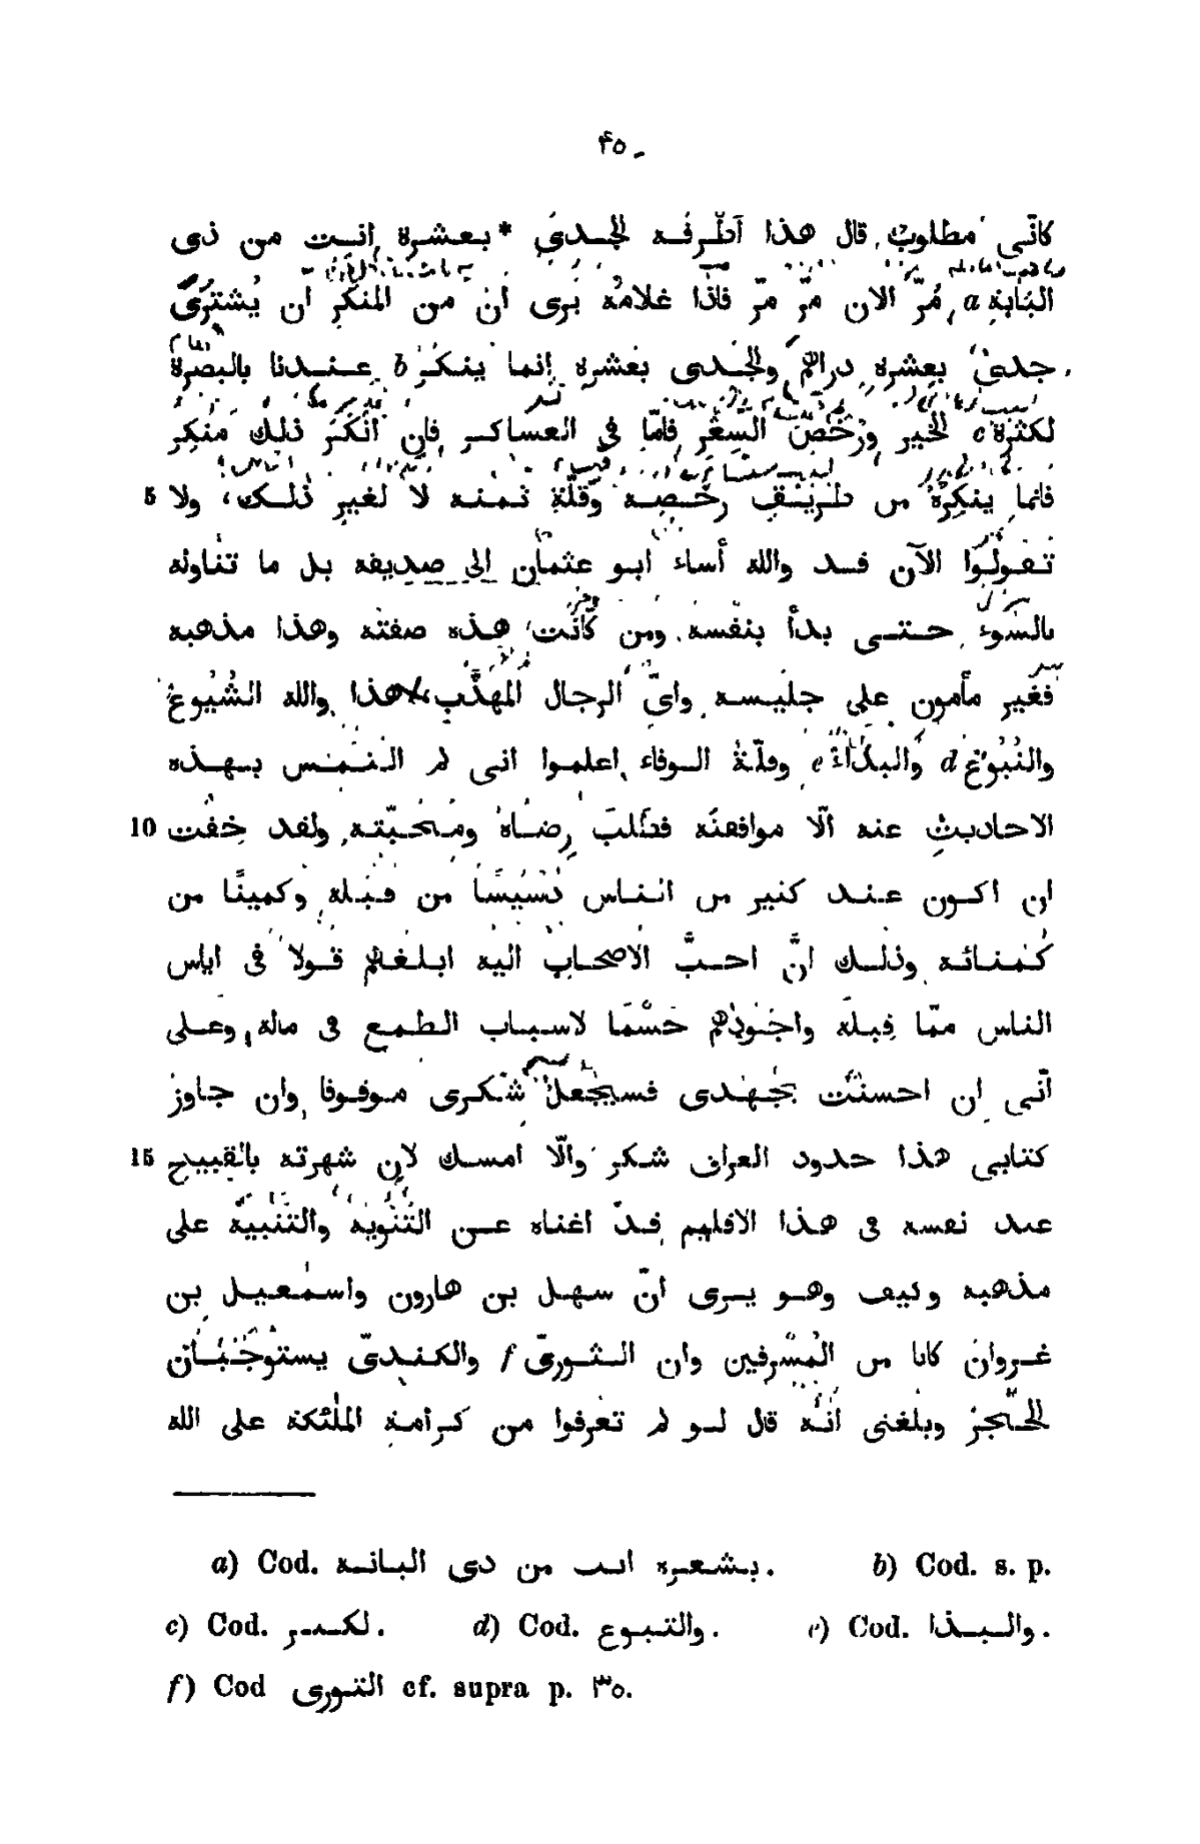 ٤٥
كانّى مطلوب قال هذا أطرفه الجدى *بعشرة انت من ذى
البابة a مُرّ الان مرّ مرّ فاذا غلامه يرى انّ من المنكر ان يُشترى
جدى بعشرة دراهم والجدى بعشرة إنما ينكر b عندنا بالبصرة
لكثرة c الخير ورُخص السِّعر فامّا فى العساكر فإن أنكر ذلك منكر
5 فانما ينكره من طريق رخصه وقلّة ثمنه لا لغير ذلك، ولا
تقولوا الآن قد والله أساء ابو عثمان الى صديقه بل ما تناوله
بالسوء حتى بدأ بنفسه ومن كانت هذه صفته وهذا مذهبه
فغير مأمون على جليسه واىّ الرجال المُهذَّب هذا والله الشُيُوع
والتُبُوع d والبَذَاء e وقلّة الوفاء اعلموا انى لم التمس بهذه
10 الاحاديث عنه الّا موافقته وطلب رضاه ومحبّته ولقد خفت
ان اكون عند كثير من الناس دَسِيسًا من قبله وكمينًا من
كمنائه وذلك انّ احبَّ الاصحاب اليه ابلغهم قولا فى اياس
الناس ممّا قِبله واجودهم حَسْمًا لاسباب الطمع فى ماله وعلى
أنّى ان احسنت بجهدى فسيجعل شكرى موقوفا وان جاوز
15 كتابى هذا حدود العراق شكر والّا امسك لان شهرته بالقبيح
عند نفسه فى هذا الاقليم قد اغناه عن التَنْوِيه والتَنْبِيه على
مذهبه وكيف وهو يرى انّ سهل بن هارون واسمعيل بن
غزوان كانا من المُسْرفين وان الثورىّ f والكندىّ يستوجبان
الحَجر وبلغنى أنّه قال لو لم تعرفوا من كرامة الملئكة على الله
a) Cod. بشعره انت من دى البانه. b) Cod. s. p.
c) Cod. d) Cod. والتبوع. e) Cod. والبذا.
f) Cod التورى cf. supra p. ٣٥.